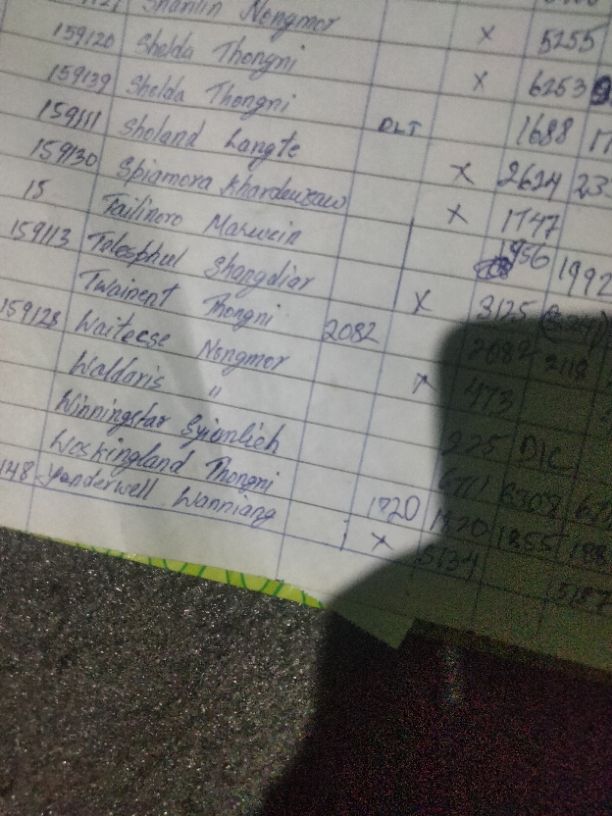 Shamlin Nongmor 
159120 Shelda Thongni x 5255
159139 Shelda Thongni x 6253
159111 Sholand Langte DLT 1688
159130 Spiamora Khardewsaw x 2624
15 Tailinoro Marwein x 1747
159113 Telesphul Shangdiar 1956 1992
Twainent Thongni x 3125
159128 Waiteese Nongmor 2082 2092 2118
Waldaris " x 473
Winningstar Syiemlieh 225 D/C
Waskingland Thongni 6308
148 Yanderwell Wanniang 1820 1820 1855
x 5134 5157